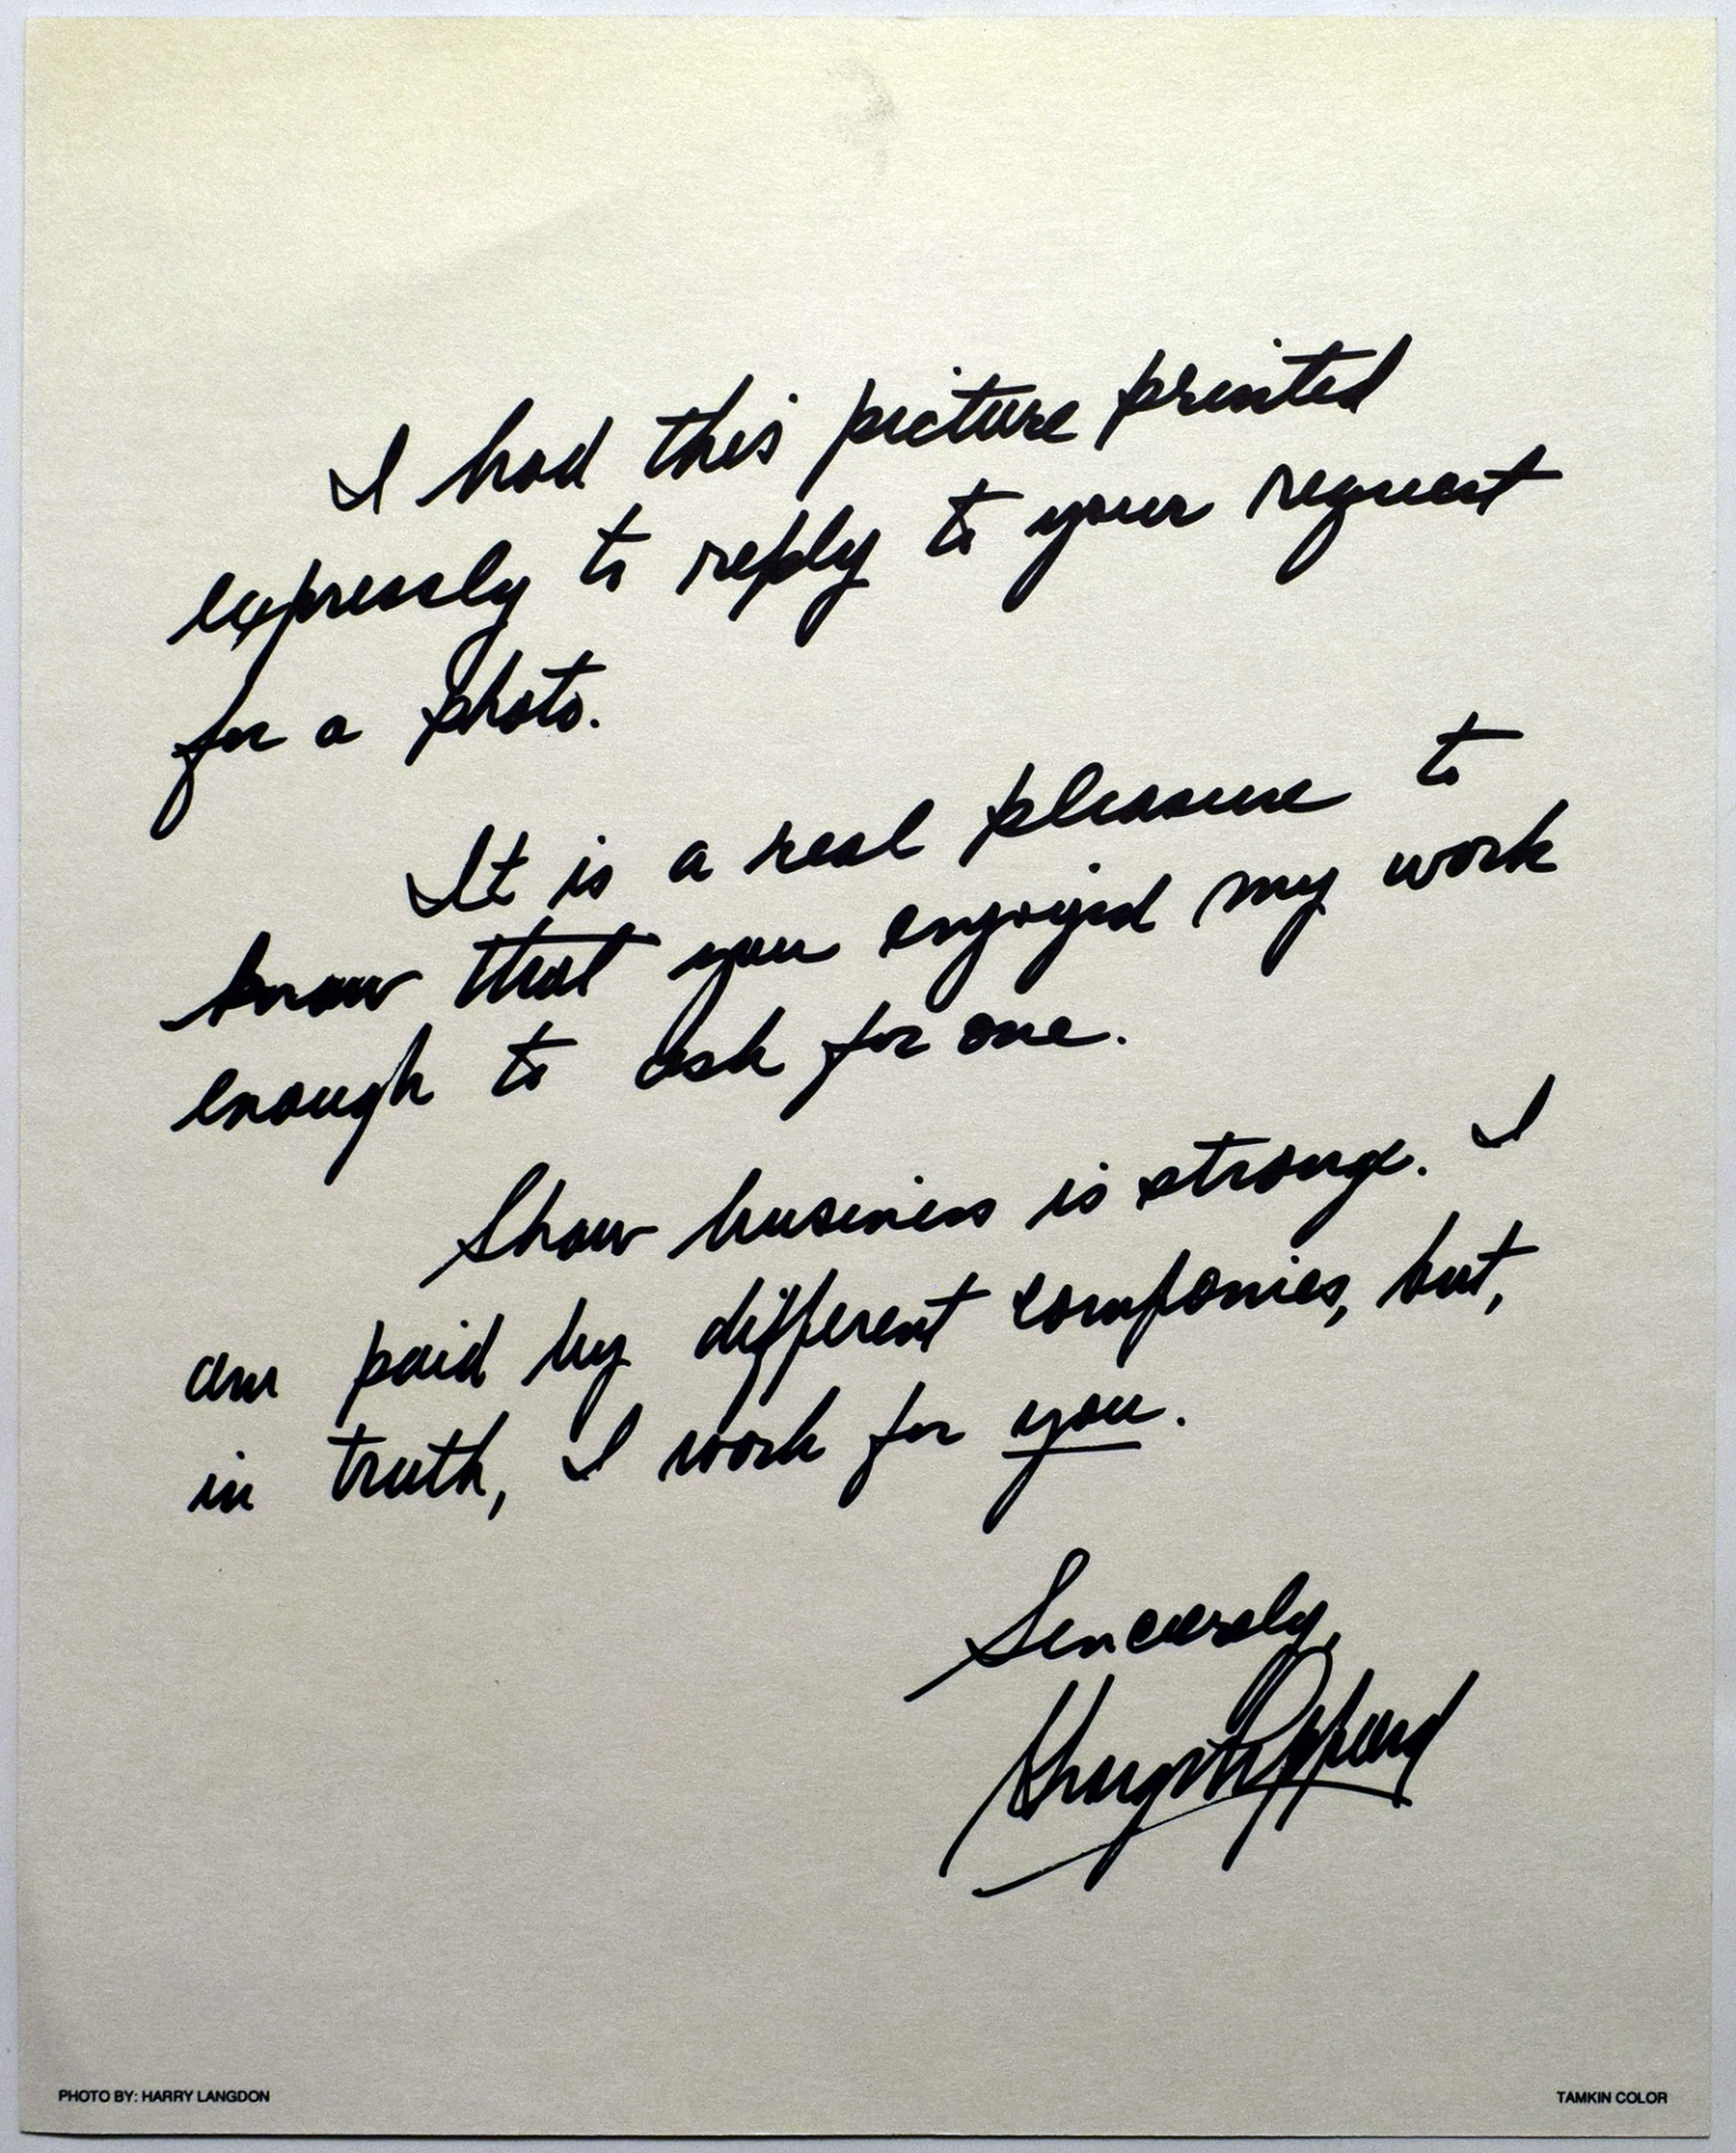 I had this picture printed
expressly to reply to your request
for a photo.
It is a real pleasure to
know that you enjoyed my work
enough to ask for one.
Show business is strange. I
am paid by different companies, but,
in truth, I work for you.
Sincerely,
George Peppard
PHOTO BY: HARRY LANGDON
TAMKIN COLOR